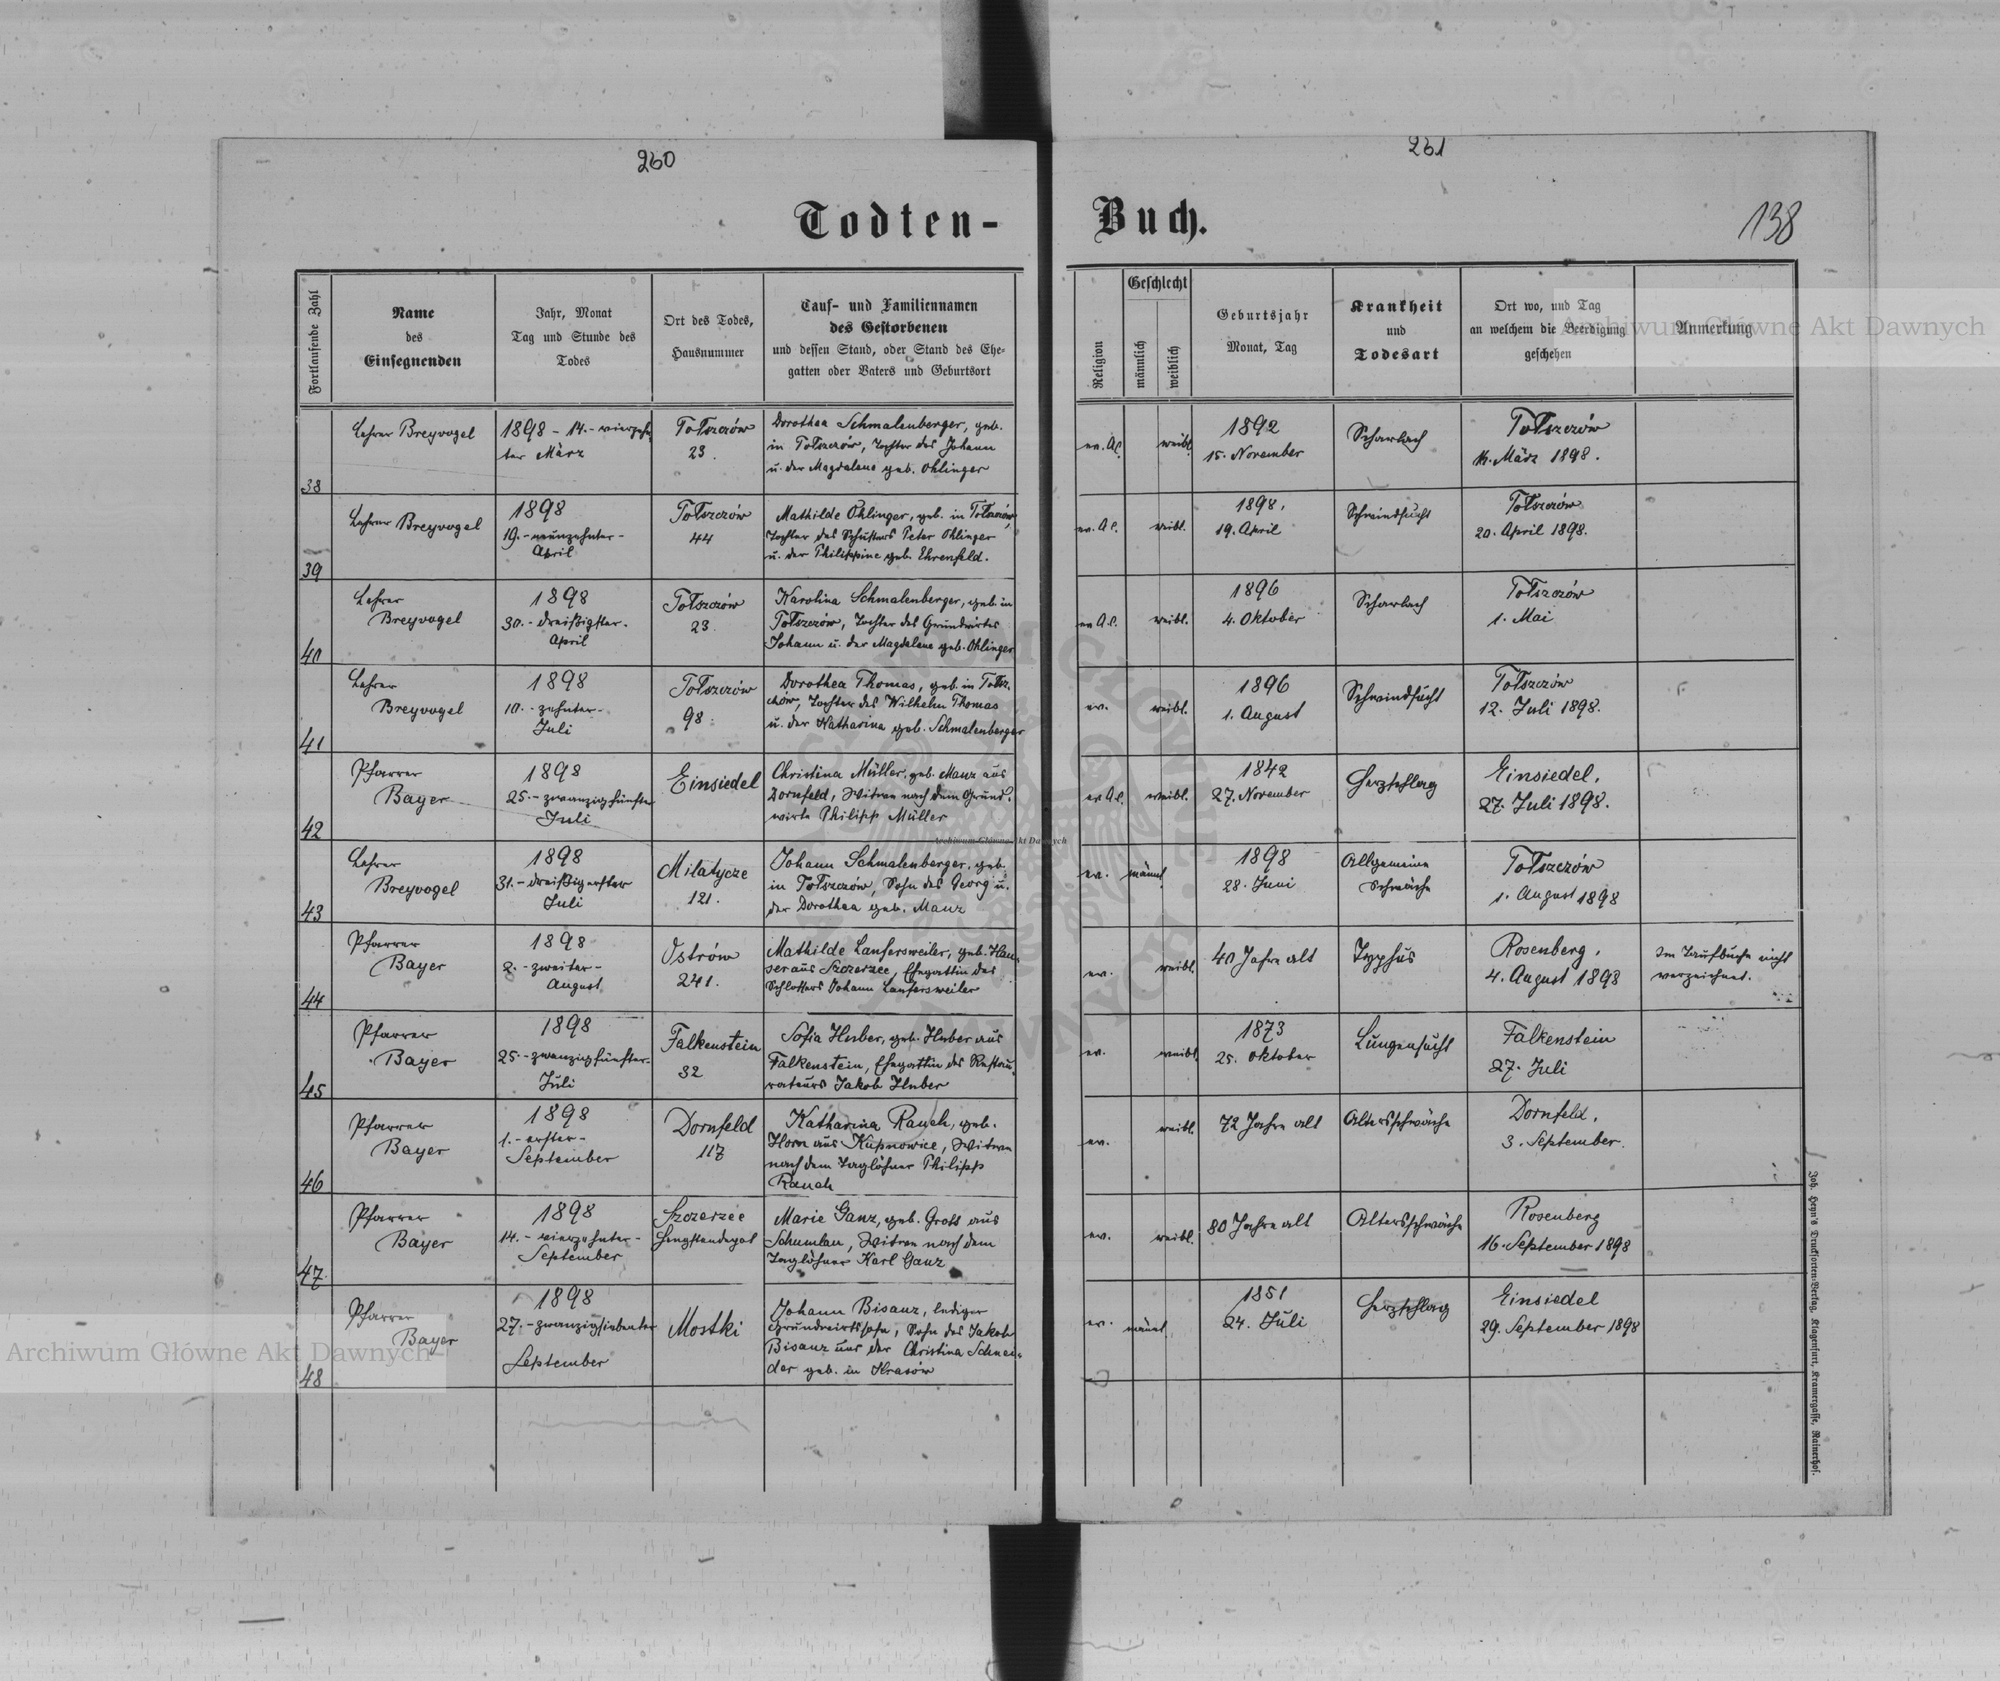 260
261
138
Todten-
Buch.
Fortlaufende Zahl
Name
des
Einsegnenden
Jahr, Monat
Tag und Stunde des
Todes
Ort des Todes,
Hausnummer
Tauf- und Familiennamen
des Gestorbenen
und dessen Stand, oder Stand des Ehe-
gatten oder Vaters und Geburtsort
Religion
Geschlecht
männlich
weiblich
Geburtsjahr
Monat, Tag
Krankheit
und
Todesart
Ort wo, und Tag
an welchem die Beerdigung
geschehen
Anmerkung
38
Lehrer Breyvogel
1898 - 14. - vierzehn
ter März
Tołszczów
23.
Dorothea Schmalenberger, geb.
in Tołszczów, Tochter des Johann
u. der Magdalena geb. Ohlinger
ev. A.C.
weibl.
1892
15. November
Scharlach
Tołszczów
16. März 1898.
39
Lehrer Breyvogel
1898
19. - neunzehnter -
April
Tołszczów
44
Mathilde Ohlinger, geb. in Tołszczów,
Tochter des Schusters Peter Ohlinger
u. der Philippine geb. Ehrenfeld.
ev. A.C.
weibl.
1898.
19. April
Schwindsucht
Tołszczów
20. April 1898.
40
Lehrer
Breyvogel
1898
30. - dreißigster.
April
Tołszczów
23.
Karolina Schmalenberger, geb. in
Tołszczów, Tochter des Grundwirtes
Johann u. der Magdalena geb. Ohlinger
ev A.C.
weibl.
1896
4. Oktober
Scharlach
Tołszczów
1. Mai
41
Lehrer
Breyvogel
1898
10. - zehnter -
Juli
Tołszczów
98.
Dorothea Thomas, geb. in Tołsz.
czów, Tochter des Wilhelm Thomas
u. der Katharina geb. Schmalenberger
ev.
weibl.
1896
1. August
Schwindsucht
Tołszczów
12. Juli 1898.
42
Pfarrer
Bayer
1898
25. - zwanzigfünfter
Juli
Einsiedel
Christina Müller, geb. Manz aus
Dornfeld, Witwe nach dem Grund-
wirte Philipp Müller
ev A.C.
weibl.
1842
27. November
Herzschlag
Einsiedel.
27. Juli 1898.
43
Lehrer
Breyvogel
1898
31. - dreißigerster
Juli
Milatycze
121.
Johann Schmalenberger, geb.
in Tołszczów, Sohn des Georg u.
der Dorothea geb. Manz
ev.
männl.
1898
28. Juni
Allgemeine
Schwäche
Tołszczów
1. August 1898
44
Pfarrer
Bayer
1898
2. - zweiter -
August
Ostrów
241.
Mathilde Laufersweiler, geb. Hau-
ser aus Szczerzec, Ehegattin des
Schlossers Johann Laufersweiler
ev.
weibl.
40 Jahre alt
Typhus
Rosenberg.
4. August 1898
Im Taufbuche nicht
verzeichnet.
45
Pfarrer
Bayer
1898
25. - zwanzigfünfter -
Juli
Falkenstein
32
Sofia Huber, geb. Huber aus
Falkenstein, Ehegattin des Restau-
rateurs Jakob Huber
ev.
weibl.
1873
25. Oktober
Lungensucht
Falkenstein
27. Juli
46
Pfarrer
Bayer
1898
1. - erster -
September
Dornfeld
117
Katharina Rauch, geb.
Horn aus Kupnowice, Witwe
nach dem Taglöhner Philipp
Rauch
ev.
weibl.
72 Jahre alt
Altersschwäche
Dornfeld.
3. September.
47
Pfarrer
Bayer
1898
14. - vierzehnter -
September
Szczerzec
Marie Ganz, geb. Gross aus
Schumlau, Witwe nach dem
Taglöhner Karl Ganz
ev.
weibl.
80 Jahre alt
Altersschwäche
Rosenberg
16. September 1898
48
Pfarrer
Bayer
1898
27. - zwanzigsiebenter
September
Mostki
Johann Bisanz, lediger
Grundwirtssohn, Sohn des Jakob
Bisanz und der Christina Schnei-
der geb. in Krasów
ev.
männl.
1851
24. Juli
Herzschlag
Einsiedel
29. September 1898
Joh. Heyn's Drucksorten-Verlag, Klagenfurt, Kramergasse, Rainerhof.
Archiwum Główne Akt Dawnych
Archiwum Główne Akt Dawnych
Archiwum Główne Akt Dawnych